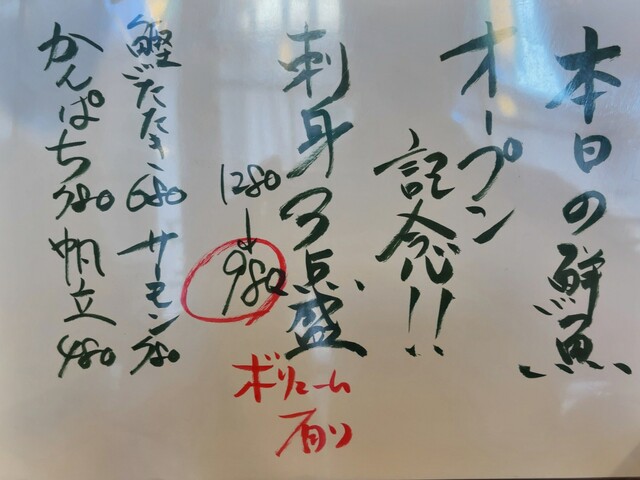 本日の鮮魚
オープン
記念!!
刺身3点盛
1280→980
ボリューム
有り
鰹たたき 680 サーモン 580
かんぱち 780 帆立 480